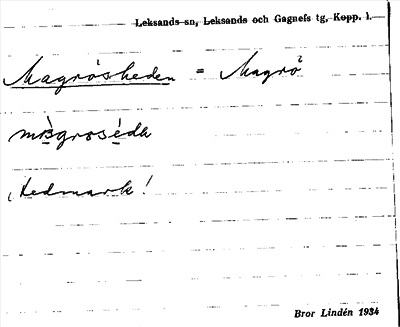 Leksands sn, Leksands och Gagnefs tg, Kopp. l.
Magrösheden = Magrö²
mògroséda
Hedmark!
Bror Lindén 1934